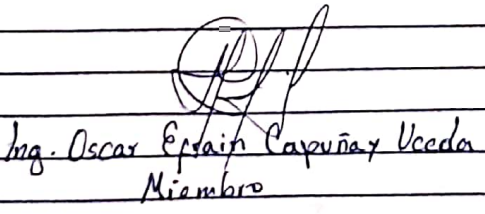 Ing. Oscar Efrain Capuñay Uceda
Miembro